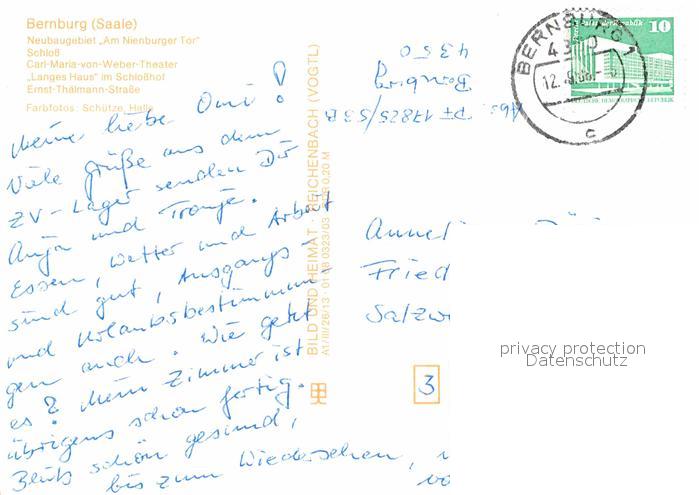 Bernburg (Saale)
Neubaugebiet „Am Nienburger Tor"
Schloß
Carl-Maria-von-Weber-Theater
„Langes Haus" im Schloßhof
Ernst-Thälmann-Straße
Farbfotos: Schütze, Halle
Meine liebe Omi!
Viele Grüße aus dem
ZV-Lager senden Dir
Anja und
Essen, Wetter und Arbeit
sind gut, Ausgangs-
und Urlaubsbestimmun-
gen auch. Wie geht
es? Mein Zimmer ist
übrigens schon fertig.
Bleib schön gesund,
bis zum Wiedersehen,
BILD UND HEIMAT · REICHENBACH (VOGTL)
A1/III/26/13 01 0323/03 0,20 M
Abs. 17825/5
Bernburg
4350
BERNBURG 1
12.
c
10
DEUTSCHE DEMOKRATISCHE REPUBLIK
Fried
Salzw
3
privacy protection
Datenschutz